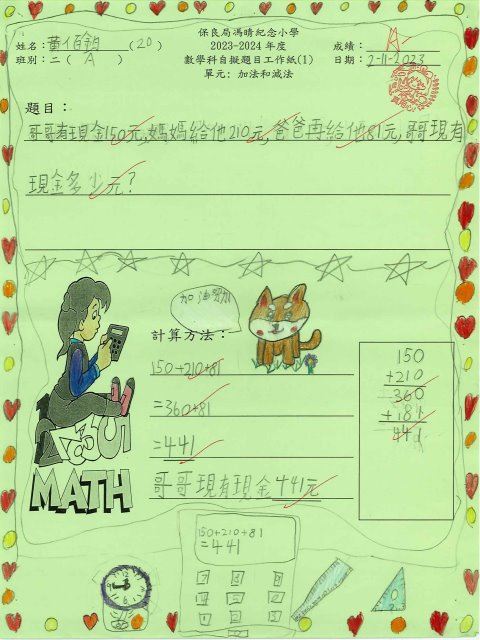 保良局馮晴紀念小學
姓名：黃佰鈞（20）
2023-2024 年度
成績：A-
班別：二（A）
數學科自擬題目工作紙(1)
日期：2-11-2023
單元：加法和減法
題目：
哥哥有現金150元,媽媽給他210元,爸爸再給他81元,哥哥現有
現金多少元?
加油努加
計算方法：
150+210+81
=360+81
=441
哥哥現有現金441元
150
+210
360
+181
441
MATH
150+210+81
=441